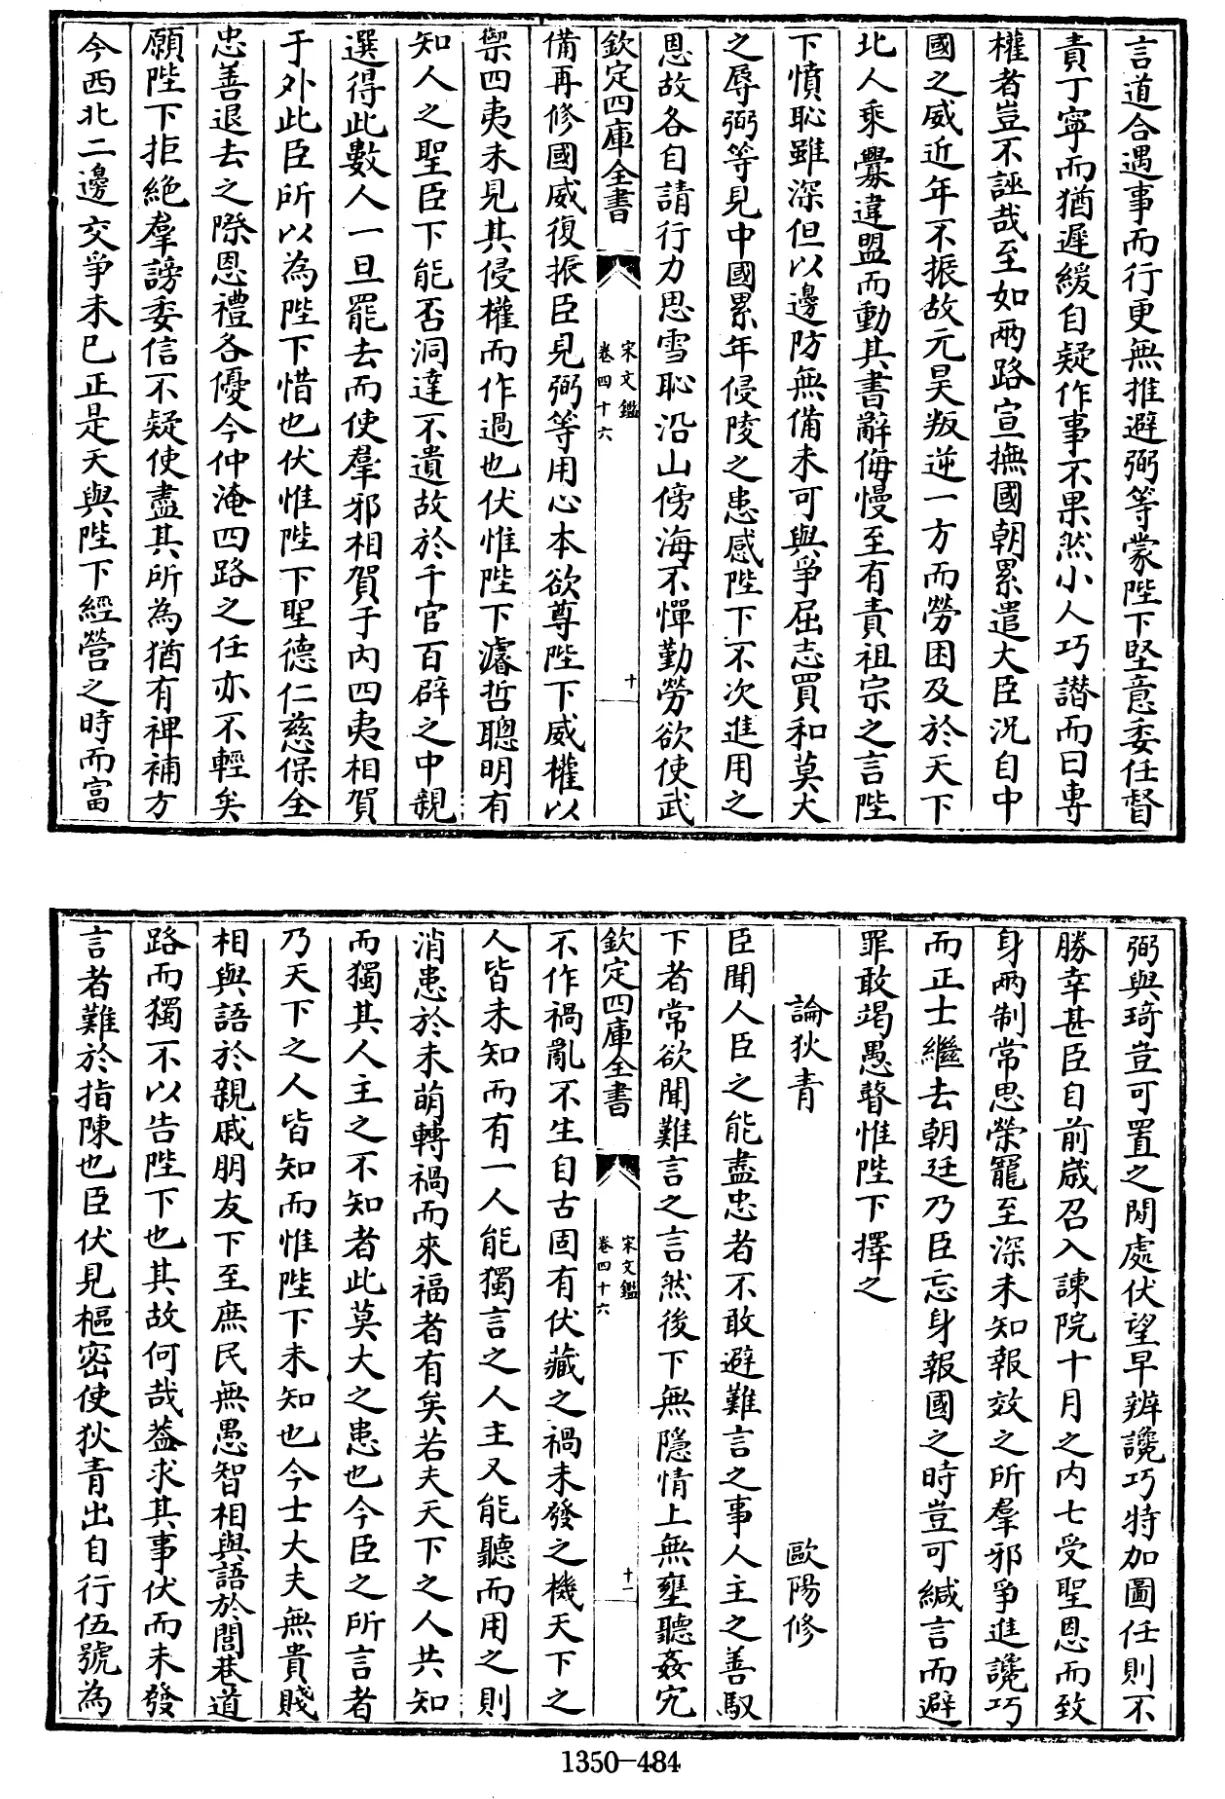 言道合遇事而行更無推避弼等蒙陛下堅意委任督
責丁寧而猶遲緩自疑作事不果然小人巧譖而曰專
權者豈不誣哉至如兩路宣撫國朝累遣大臣況自中
國之威近年不振故元昊叛逆一方而勞困及於天下
北人乘釁違盟而動其書辭侮慢至有責祖宗之言陛
下憤恥雖深但以邊防無備未可與爭屈志買和莫大
之辱弼等見中國累年侵陵之患感陛下不次進用之
恩故各自請行力思雪恥沿山傍海不憚勤勞欲使武
欽定四庫全書
宋文鑑
卷四十六
十
備再修國威復振臣見弼等用心本欲尊陛下威權以
禦四夷未見其侵權而作過也伏惟陛下濬哲聰明有
知人之聖臣下能否洞達不遺故於千官百辟之中親
選得此數人一旦罷去而使羣邪相賀于内四夷相賀
于外此臣所以為陛下惜也伏惟陛下聖德仁慈保全
忠善退去之際恩禮各優今仲淹四路之任亦不輕矣
願陛下拒絶羣謗委信不疑使盡其所為猶有裨補方
今西北二邊交爭未已正是天與陛下經營之時而富
弼與琦豈可置之閒處伏望早辨讒巧特加圖任則不
勝幸甚臣自前嵗召入諫院十月之内七受聖恩而致
身兩制常思榮寵至深未知報效之所羣邪爭進讒巧
而正士繼去朝廷乃臣忘身報國之時豈可緘言而避
罪敢竭愚瞽惟陛下擇之
論狄青
歐陽修
臣聞人臣之能盡忠者不敢避難言之事人主之善馭
下者常欲聞難言之言然後下無隱情上無壅聽姦宄
欽定四庫全書
宋文鑑
卷四十六
十一
不作禍亂不生自古固有伏藏之禍未發之機天下之
人皆未知而有一人能獨言之人主又能聽而用之則
消患於未萌轉禍而來福者有矣若夫天下之人共知
而獨其人主之不知者此莫大之患也今臣之所言者
乃天下之人皆知而惟陛下未知也今士大夫無貴賤
相與語於親戚朋友下至庶民無愚智相與語於閭巷道
路而獨不以告陛下也其故何哉葢求其事伏而未發
言者難於指陳也臣伏見樞密使狄青出自行伍號為
1350-484